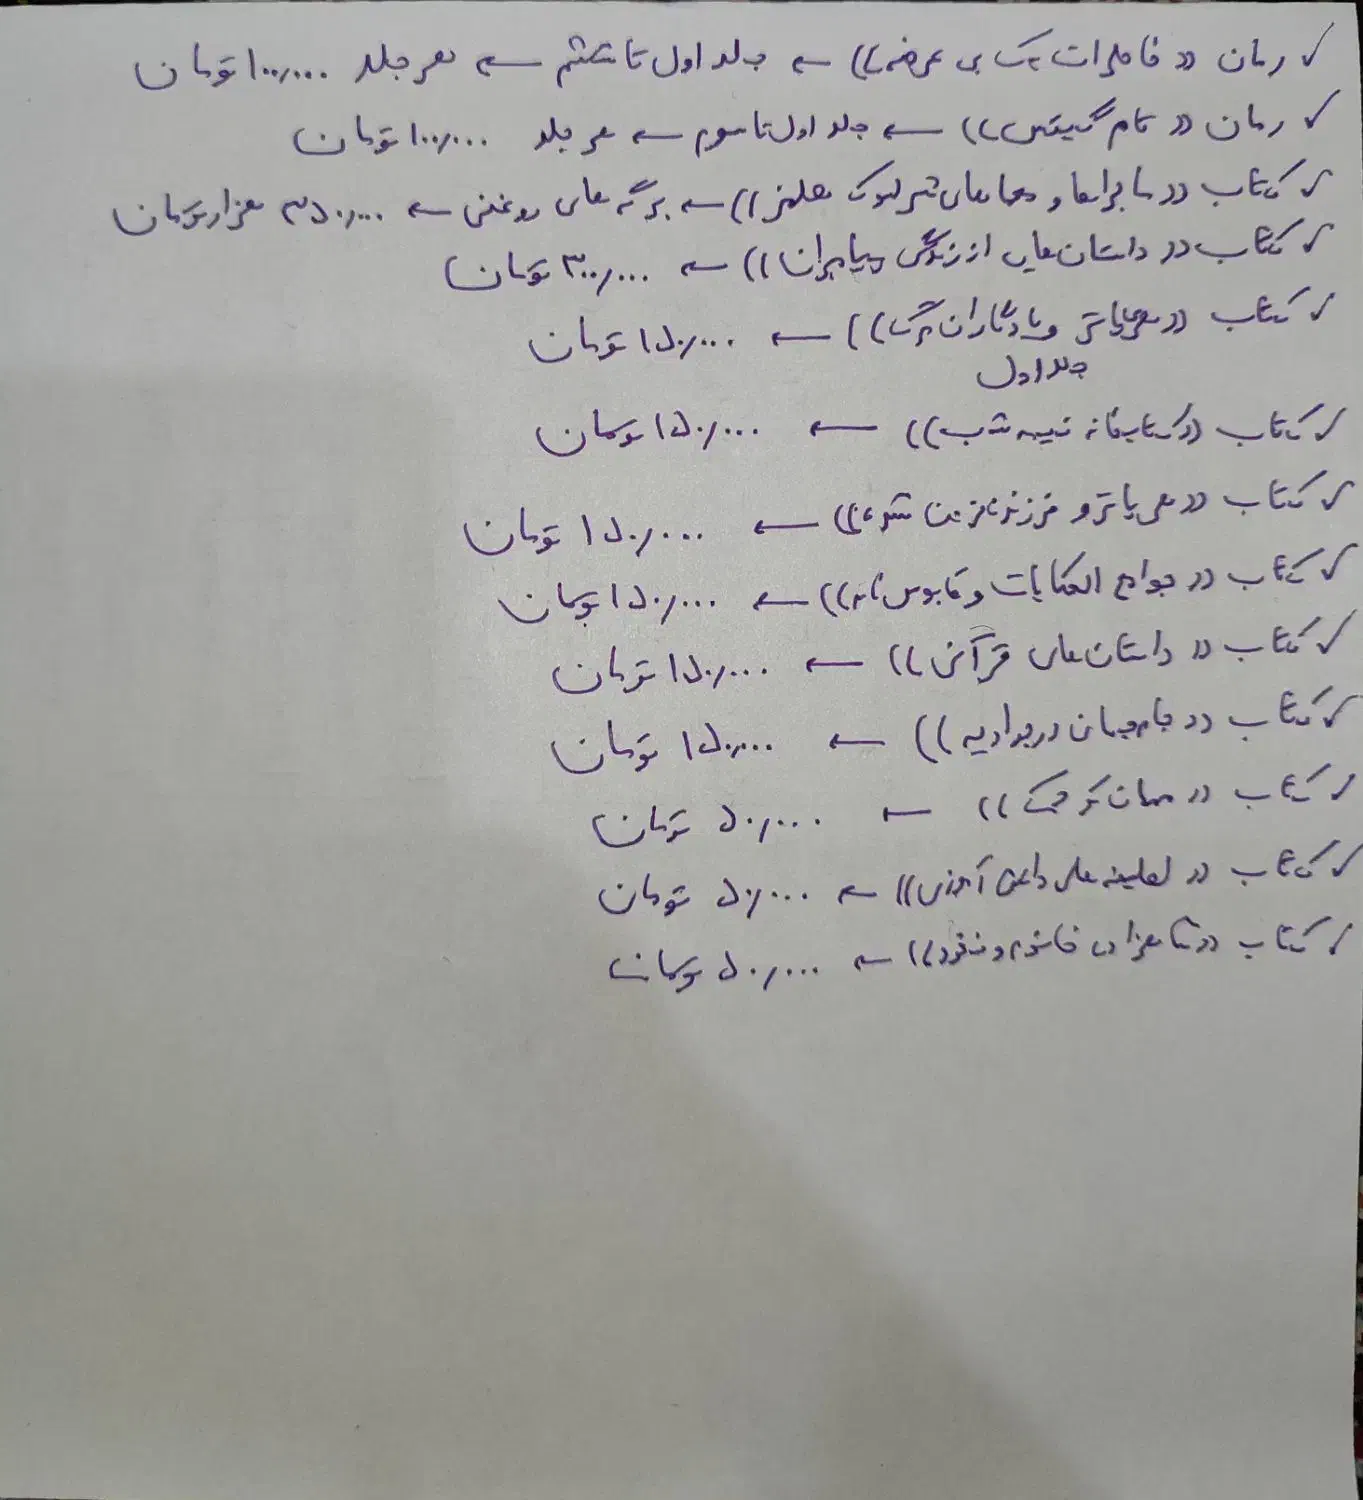 ✓ رمان «خاطرات یک بی عرضه» ← جلد اول تا ششم ← هر جلد ۱۰۰/۰۰۰ تومان
✓ رمان «تام گیتس» ← جلد اول تا سوم ← هر جلد ۱۰۰/۰۰۰ تومان
✓ کتاب «ماجراها و معماهای شرلوک هلمز» ← برگه های روغنی ← ۳۵۰/۰۰۰ هزار تومان
✓ کتاب «داستان هایی از زندگی پیامبران» ← ۳۰۰/۰۰۰ تومان
✓ کتاب «هری پاتر و یادگاران مرگ» ← ۱۵۰/۰۰۰ تومان
جلد اول
✓ کتاب «کتابخانه نیمه شب» ← ۱۵۰/۰۰۰ تومان
✓ کتاب «هری پاتر و فرزند نفرین شده» ← ۱۵۰/۰۰۰ تومان
✓ کتاب «جوامع الحکایات و قابوس نامه» ← ۱۵۰/۰۰۰ تومان
✓ کتاب «داستان های قرآنی» ← ۱۵۰/۰۰۰ تومان
✓ کتاب «جام جهان در جوادیه» ← ۱۵۰/۰۰۰ تومان
✓ کتاب « » ← ۵۰/۰۰۰ تومان
✓ کتاب «لطیفه های دانش آموزی» ← ۵۰/۰۰۰ تومان
✓ کتاب « خانوم و نخودی» ← ۵۰/۰۰۰ تومان